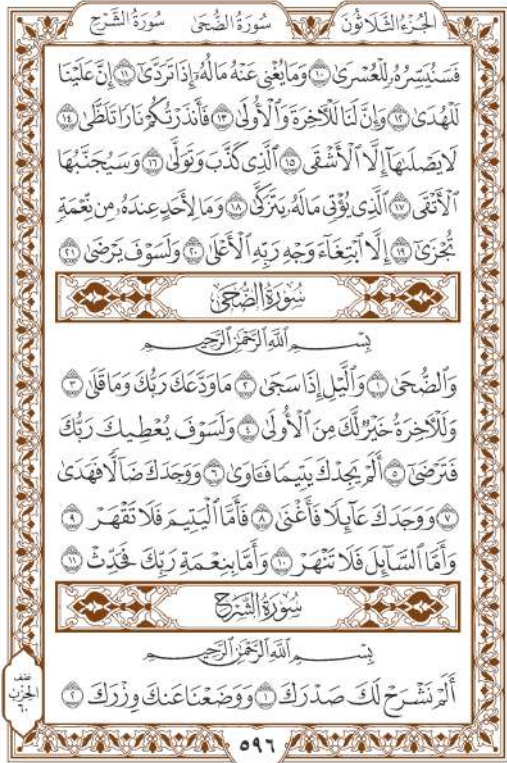 الجُزْءُ الثَّلَاثُونَ سُورَةُ الضُّحَى سُورَةُ الشَّرْحِ
فَسَنُيَسِّرُهُۥ لِلْعُسْرَىٰ ١٠ وَمَا يُغْنِى عَنْهُ مَالُهُۥٓ إِذَا تَرَدَّىٰٓ ١١ إِنَّ عَلَيْنَا
لَلْهُدَىٰ ١٢ وَإِنَّ لَنَا لَلْـَٔاخِرَةَ وَٱلْأُولَىٰ ١٣ فَأَنذَرْتُكُمْ نَارًا تَلَظَّىٰ ١٤
لَا يَصْلَىٰهَآ إِلَّا ٱلْأَشْقَى ١٥ ٱلَّذِى كَذَّبَ وَتَوَلَّىٰ ١٦ وَسَيُجَنَّبُهَا
ٱلْأَتْقَى ١٧ ٱلَّذِى يُؤْتِى مَالَهُۥ يَتَزَكَّىٰ ١٨ وَمَا لِأَحَدٍ عِندَهُۥ مِن نِّعْمَةٍ
تُجْزَىٰٓ ١٩ إِلَّا ٱبْتِغَآءَ وَجْهِ رَبِّهِ ٱلْأَعْلَىٰ ٢٠ وَلَسَوْفَ يَرْضَىٰ ٢١
سُورَةُ الضُّحَىٰ
بِسْمِ ٱللَّهِ ٱلرَّحْمَٰنِ ٱلرَّحِيمِ
وَٱلضُّحَىٰ ١ وَٱلَّيْلِ إِذَا سَجَىٰ ٢ مَا وَدَّعَكَ رَبُّكَ وَمَا قَلَىٰ ٣
وَلَلْـَٔاخِرَةُ خَيْرٌ لَّكَ مِنَ ٱلْأُولَىٰ ٤ وَلَسَوْفَ يُعْطِيكَ رَبُّكَ
فَتَرْضَىٰٓ ٥ أَلَمْ يَجِدْكَ يَتِيمًا فَـَٔاوَىٰ ٦ وَوَجَدَكَ ضَآلًّا فَهَدَىٰ
٧ وَوَجَدَكَ عَآئِلًا فَأَغْنَىٰ ٨ فَأَمَّا ٱلْيَتِيمَ فَلَا تَقْهَرْ ٩
وَأَمَّا ٱلسَّآئِلَ فَلَا تَنْهَرْ ١٠ وَأَمَّا بِنِعْمَةِ رَبِّكَ فَحَدِّثْ ١١
سُورَةُ الشَّرْحِ
بِسْمِ ٱللَّهِ ٱلرَّحْمَٰنِ ٱلرَّحِيمِ
أَلَمْ نَشْرَحْ لَكَ صَدْرَكَ ١ وَوَضَعْنَا عَنكَ وِزْرَكَ ٢
نصف
الحزب
٦٠
٥٩٦